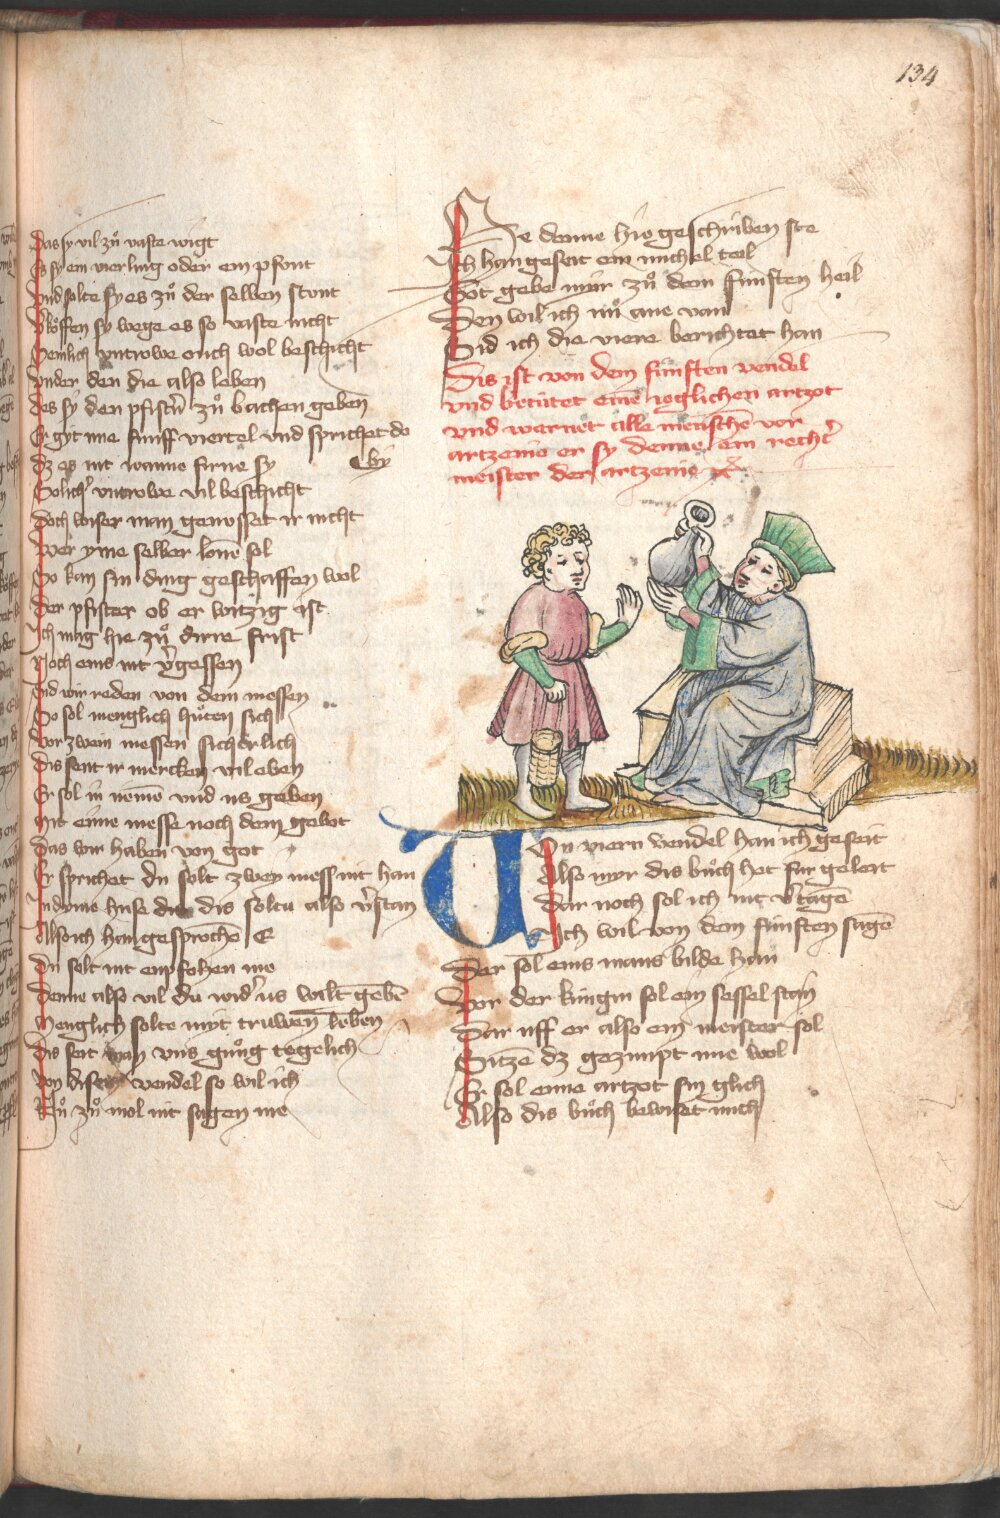 134
Das sy vil zů vaste wigt
Es sy ein vierling oder ein pfont
Vnd solte sy es zů der selben stont
V̓köffen sy wege es so vaste nicht
Semlich vntrowe ouch wol beschicht
Vnder den die also leben
Das sy den pfist̓n zů bachen geben̄
Er gyt me funff viertel vnd sprichet do
Dz es nit wanne firne sy
by
Solich̓ vntrowe vil beschicht
Doch wiser man genosset ir nicht
Wer yme selber lonē sol
So kan sin ding geschaffen wol
Der pfister ob er witzig ist
Ich mag hie zů dirre frist
Noch eins nit v̓gessen
Sid wir reden von dem messen
So sol menglich hůten sich
Vor zwein messen sicherlich
Dis sent ir mercken vil eben
Er sol in nemē vnd us geben
Mit eime messe noch dem gebot
Das wir haben von got
Er sprichet du solt zwey mess nit han
In dyme huse dis soltu also v̓stan
Also ich han gesprochē E
Du solt nit enpfohen me
Denne also vil du wid̓ us wilt gebē
Menglich solte mit truwen leben
Dis seit man vns gnůg tegelich
Von disem vendel so wil ich
Nů zů mol nit sagen me
Se denne hie geschriben ste
Ich han geseit ein michel teil
Got gebe mir zů dem funften heil
Den wil ich nů ane van
Sid ich die viere berichtet han
Dis ist von dem funften vendel
vnd betutet einē ieglichen artzot
vnd warnet alle menschē vor
artzenie er sy denne ein recht̓
meister der artzenie
Von viern vendel han ich geseit
Also mir dis bůch het fur geleit
Dar noch sol ich nit v̓tagē
Ich wil von dem funften sagē
Der sol eins mans bilde han
Vor der kungin sol ein sessel stan
Dar uff er also ein meister sol
Sitzē dz gezimpt ime wol
Er sol eime artzot sin glich
Also dis bůch bewiset mich